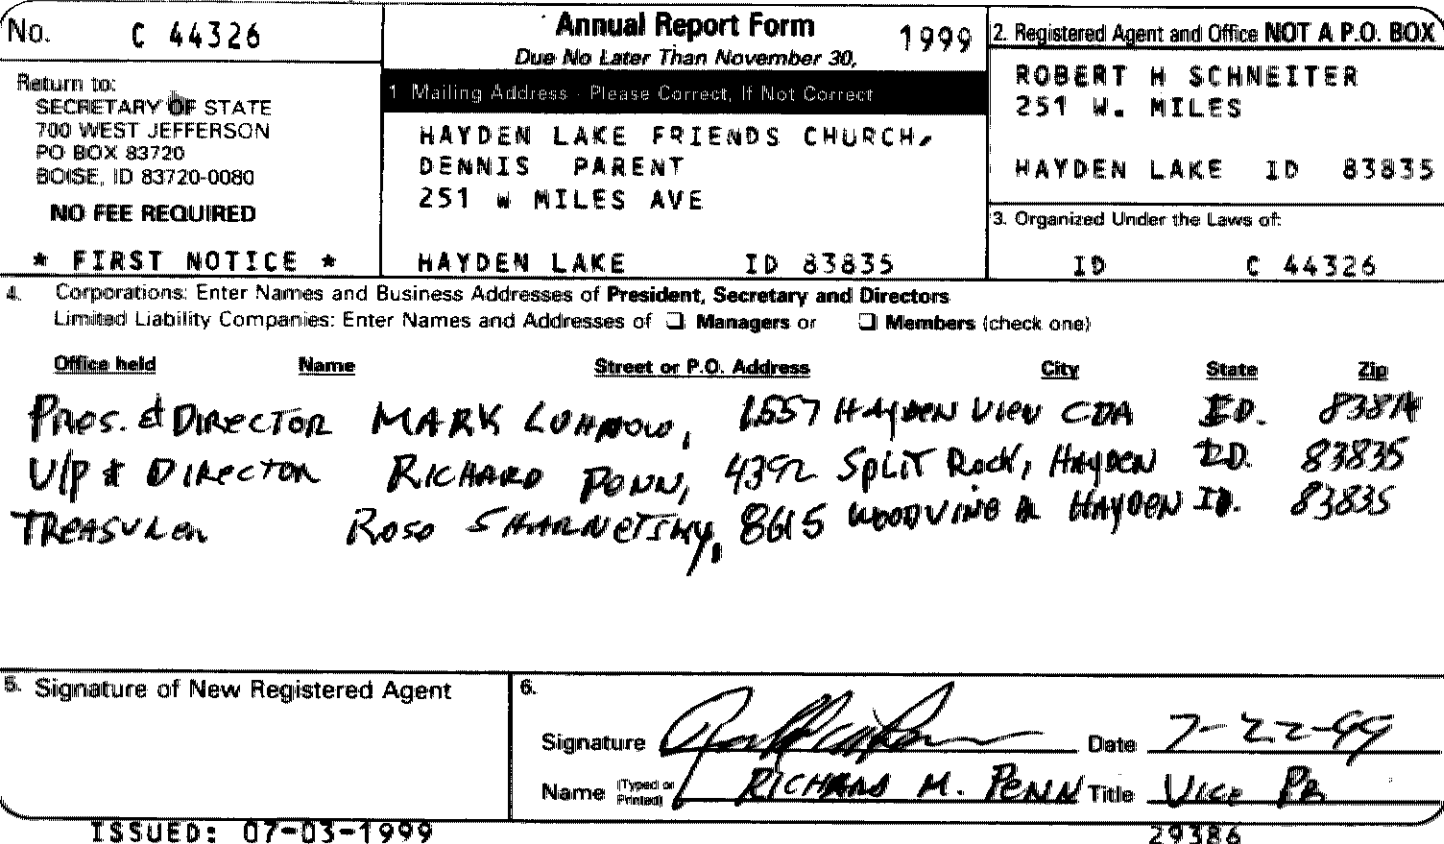 No. C 44326
Return to:
SECRETARY OF STATE
700 WEST JEFFERSON
PO BOX 83720
BOISE, ID 83720-0080
NO FEE REQUIRED
* FIRST NOTICE *
Annual Report Form 1999
Due No Later Than November 30,
1 Mailing Address - Please Correct, If Not Correct
HAYDEN LAKE FRIENDS CHURCH,
DENNIS PARENT
251 W MILES AVE
HAYDEN LAKE ID 83835
2. Registered Agent and Office NOT A P.O. BOX
ROBERT H SCHNEITER
251 W. MILES
HAYDEN LAKE ID 83835
3. Organized Under the Laws of:
ID C 44326
4. Corporations: Enter Names and Business Addresses of President, Secretary and Directors
Limited Liability Companies: Enter Names and Addresses of ❑ Managers or ❑ Members (check one)
Office held Name Street or P.O. Address City State Zip
Pres. & DIRECTOR MARK 1557 HAYDEN VIEW CDA ID. 83814
V/P & DIRECTOR RICHARD PENN, 4392 SPLIT Rock, HAYDEN ID. 83835
TREASURER 8615 WOODVINE HAYDEN ID. 83835
5. Signature of New Registered Agent
6.
Signature Date 7-22-99
Name (Typed or Printed) RICHARD M. PENN Title VICE PR
ISSUED: 07-03-1999 29386